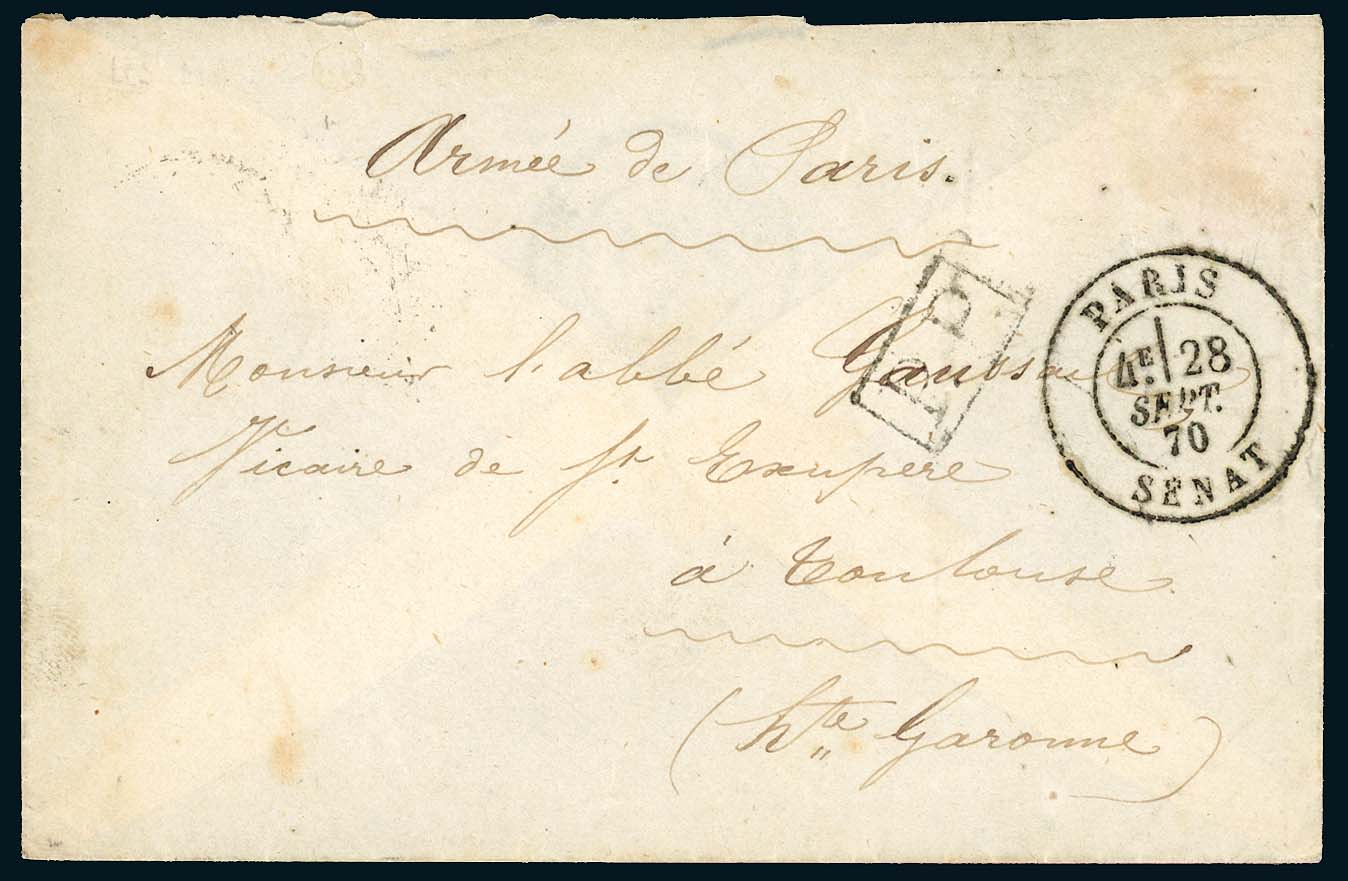 Armée de Paris.
P.P.
PARIS
4E. 28
SEPT.
70
SENAT
Monsieur l'abbé
Vicaire de St Exupere
à Toulouse
(hte Garonne)